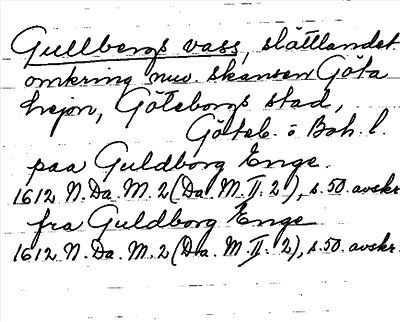 Gullbergs vass, slättlandet
omkring nuv. skansen Göta
lejon, Göteborgs stad,
Göteb. o Boh. l.
paa Guldborg Enge.
1612 N. Da. M. 2 (Da. M. II. 2), s. 50. avskr.
fra Guldborg Enge
1612 N. Da. M. 2 (Da. M. II. 2), s. 50. avskr.